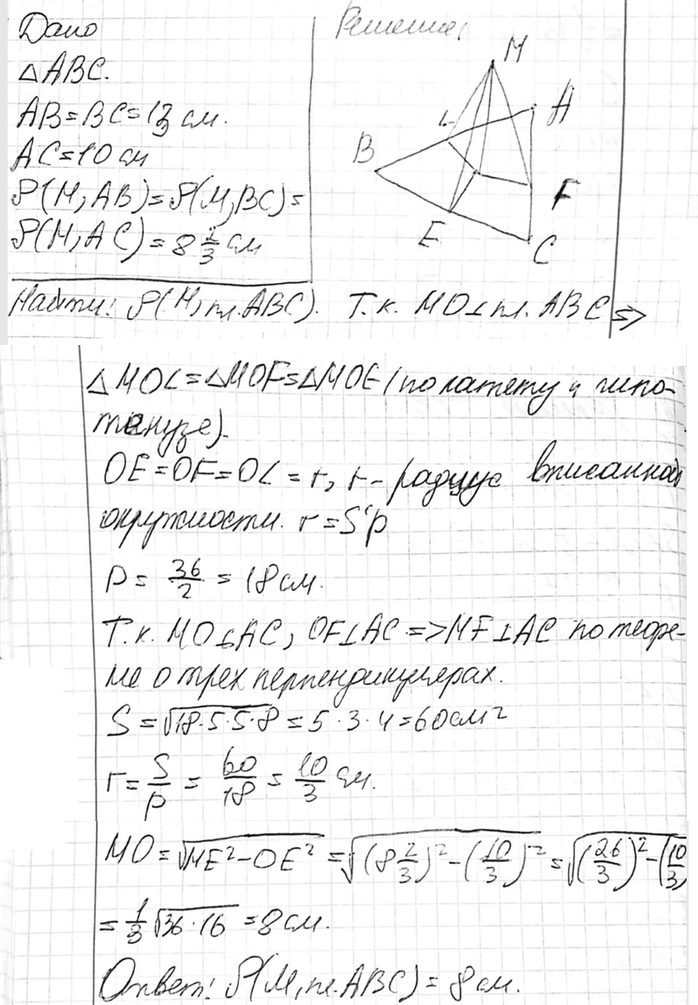 Дано
△ABC.
AB=BC=13 см.
AC=10 см
ρ(M,AB)=ρ(M,BC)=
ρ(M,AC)=8 2/3 см
Найти: ρ(M,пл.ABC).
Решение:
M
L
A
B
F
E
C
Т.к. MO⊥пл.ABC =>
△MOL=△MOF=△MOE (по катету и гипо-
тенузе).
OE=OF=OL=r, r-радиус вписанной
окружности. r=S'p
P= 36/2 = 18 см.
Т.к. MO⊥AC, OF⊥AC =>MF⊥AC по теоре-
ме о трех перпендикулярах.
S=√18·5·5·8=5·3·4=60см2
r= S/p = 60/18 = 10/3 см.
MO=√ME²-OE² =√(8 2/3)²-(10/3)² =√(26/3)²-(10/3)
= 1/3 √36·16 =8 см.
Ответ: ρ(M,пл.ABC)=8 см.